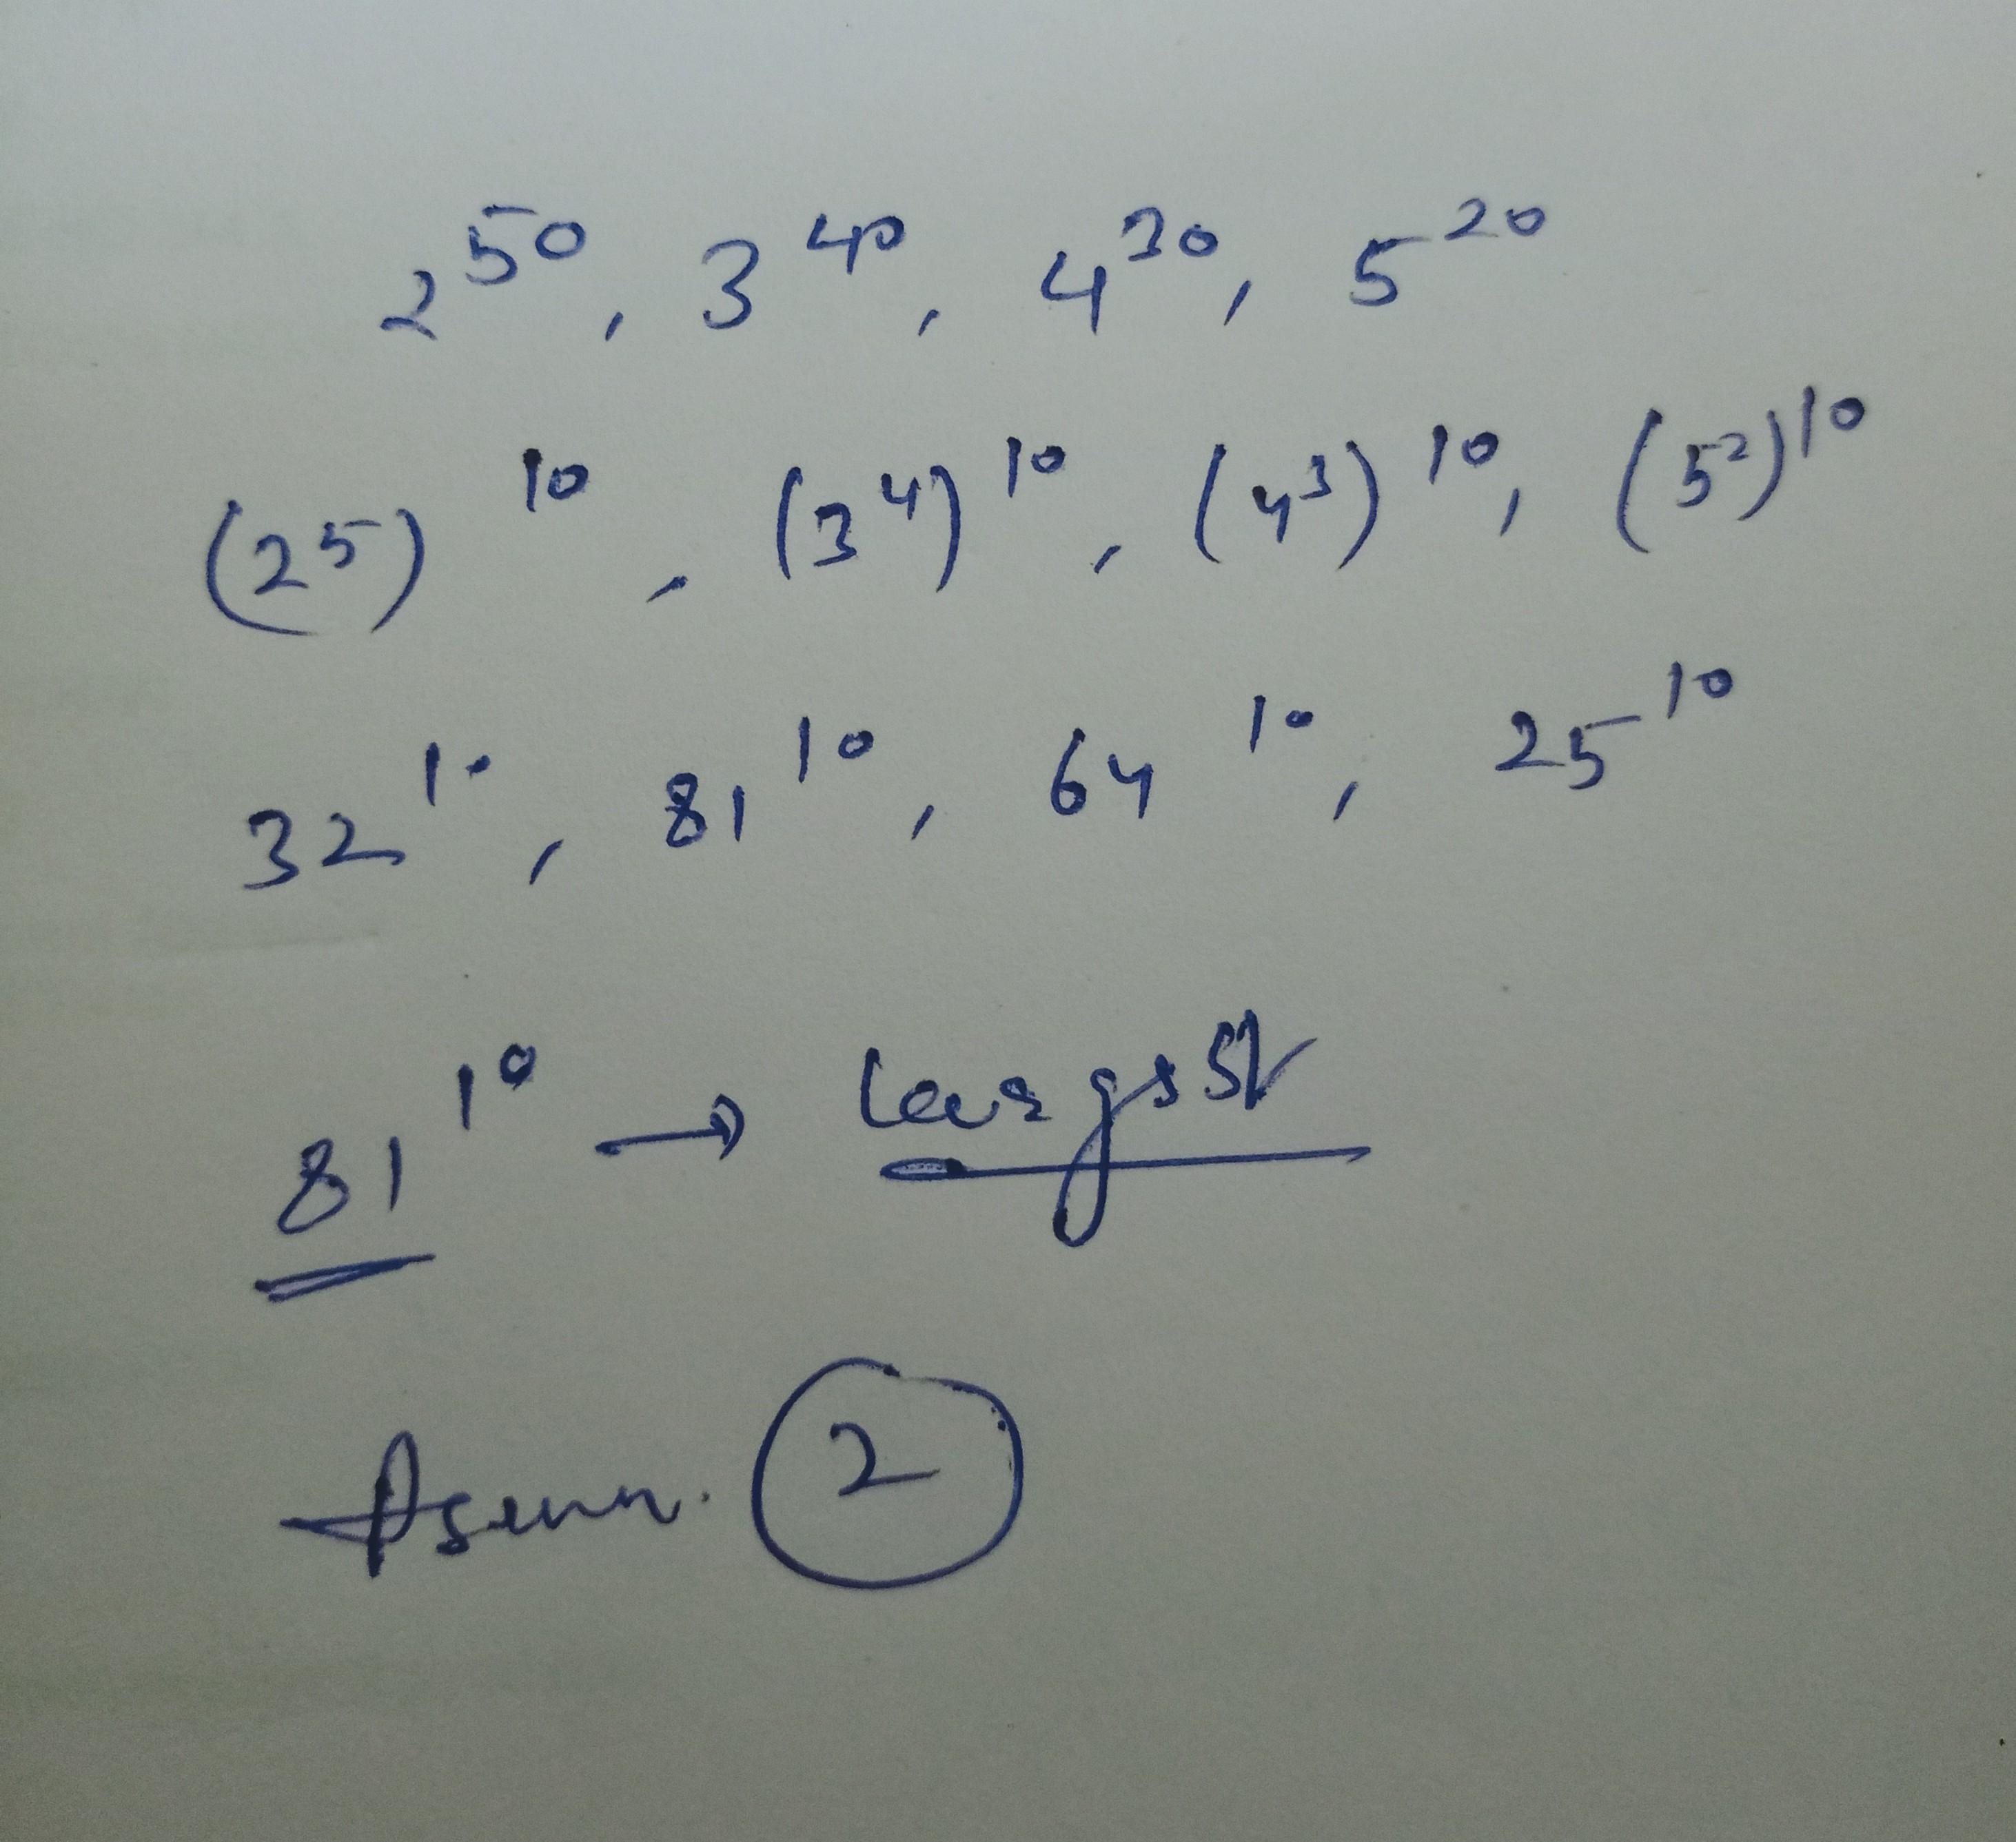 2^50, 3^40, 4^30, 5^20
(2^5)^10, (3^4)^10, (4^3)^10, (5^2)^10
32^10, 81^10, 64^10, 25^10
81^10 → largest
2